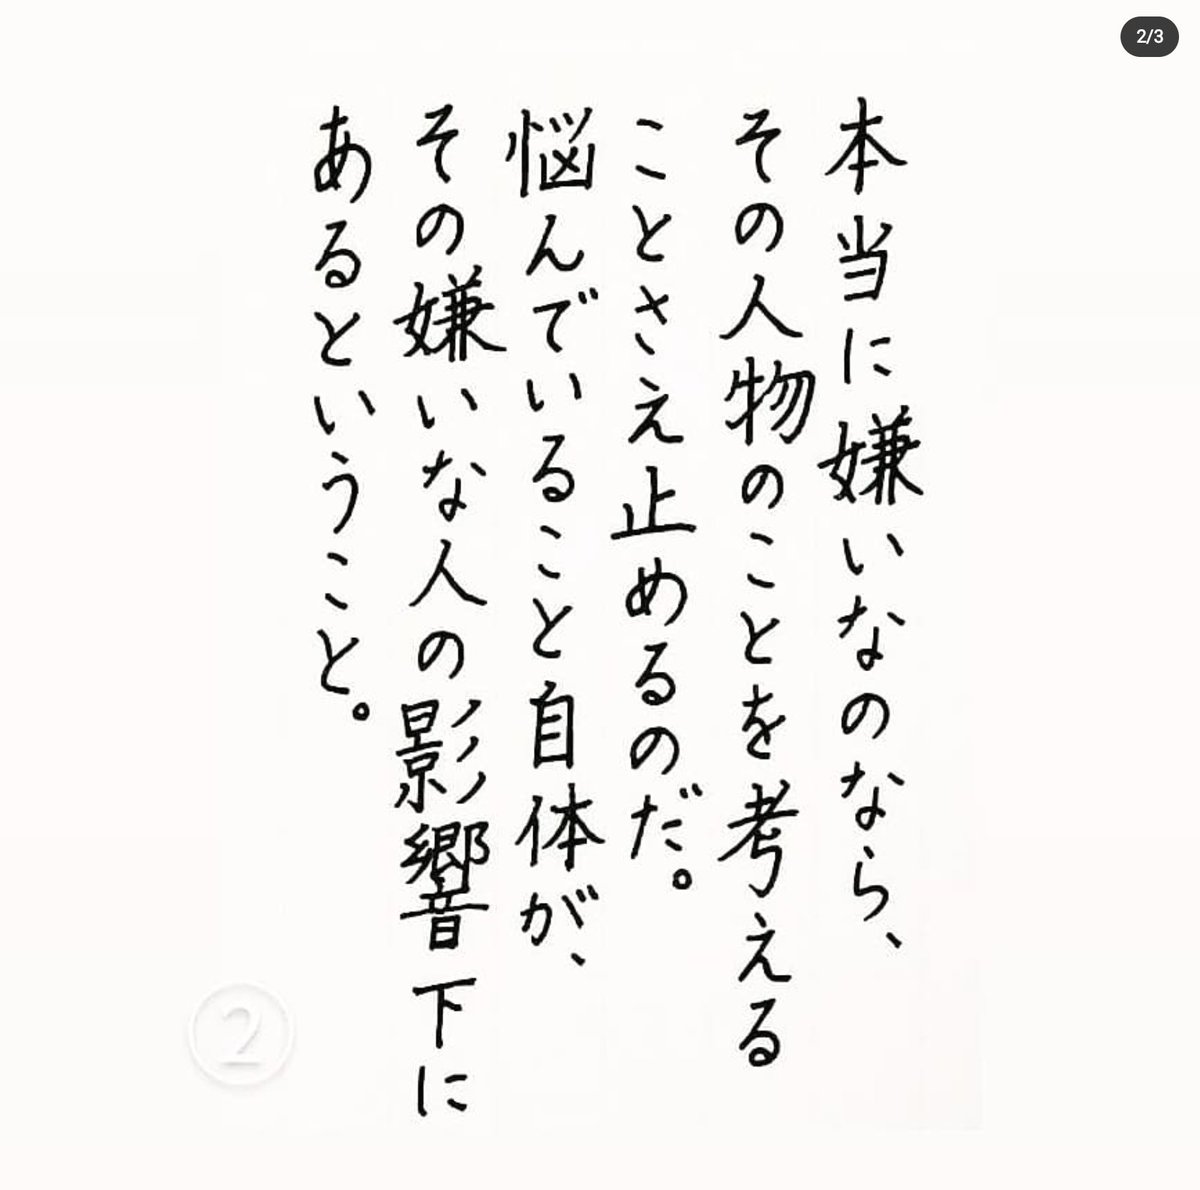 2/3
本当に嫌いなのなら、
その人物のことを考える
ことさえ止めるのだ。
悩んでいること自体が、
その嫌いな人の影響下に
あるということ。
2